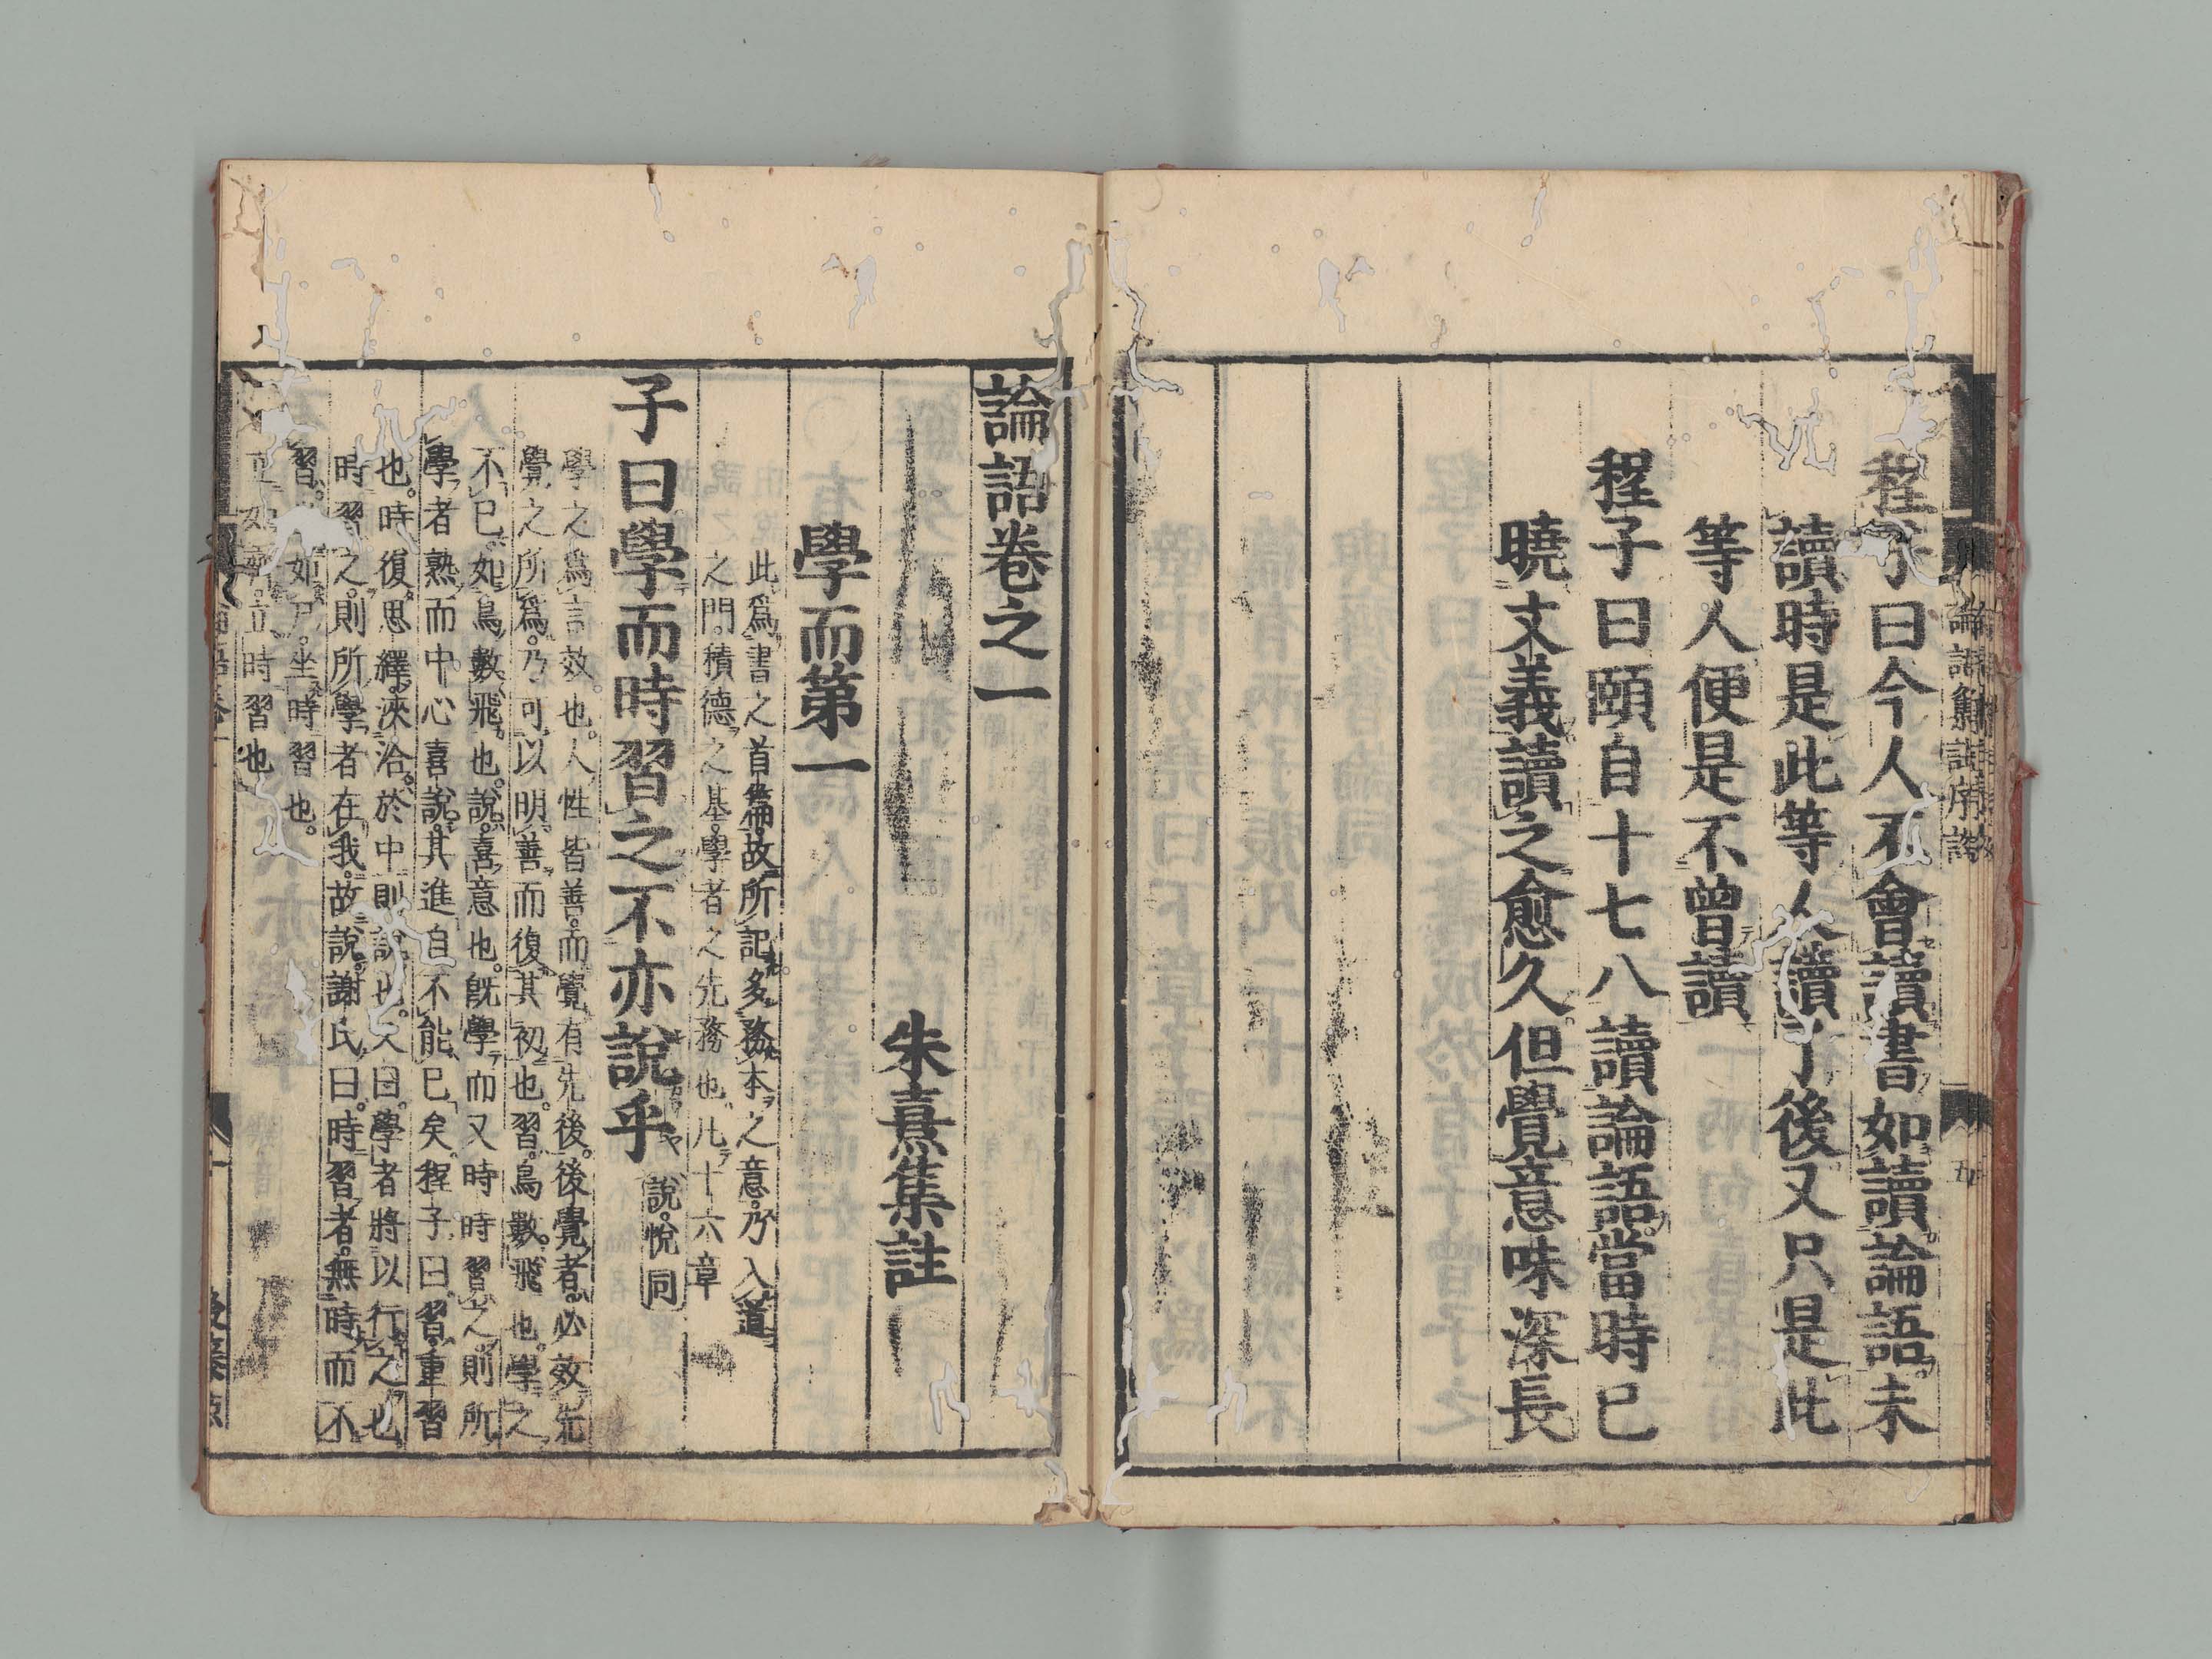 程子曰今人不會讀書如讀論語未
讀時是此等人讀了後又只是此
等人便是不曾讀
程子曰頤自十七八讀論語當時已
曉文義讀之愈久但覺意味深長
論語卷之一
朱熹集註
學而第一
此爲書之首篇故所記多務本之意乃入道
之門積德之基學者之先務也凡十六章
子曰學而時習之不亦說乎
說悅同
學之爲言效也人性皆善而覺有先後後覺者必效先
覺之所爲乃可以明善而復其初也習鳥數飛也學之
不已如鳥數飛也說喜意也旣學而又時時習之則所
學者熟而中心喜說其進自不能已矣程子曰習重習
也時復思繹浹洽於中則說也又曰學者將以行之也
時習之則所學者在我故說謝氏曰時習者無時而不
習如尸坐時習也
如齊立時習也